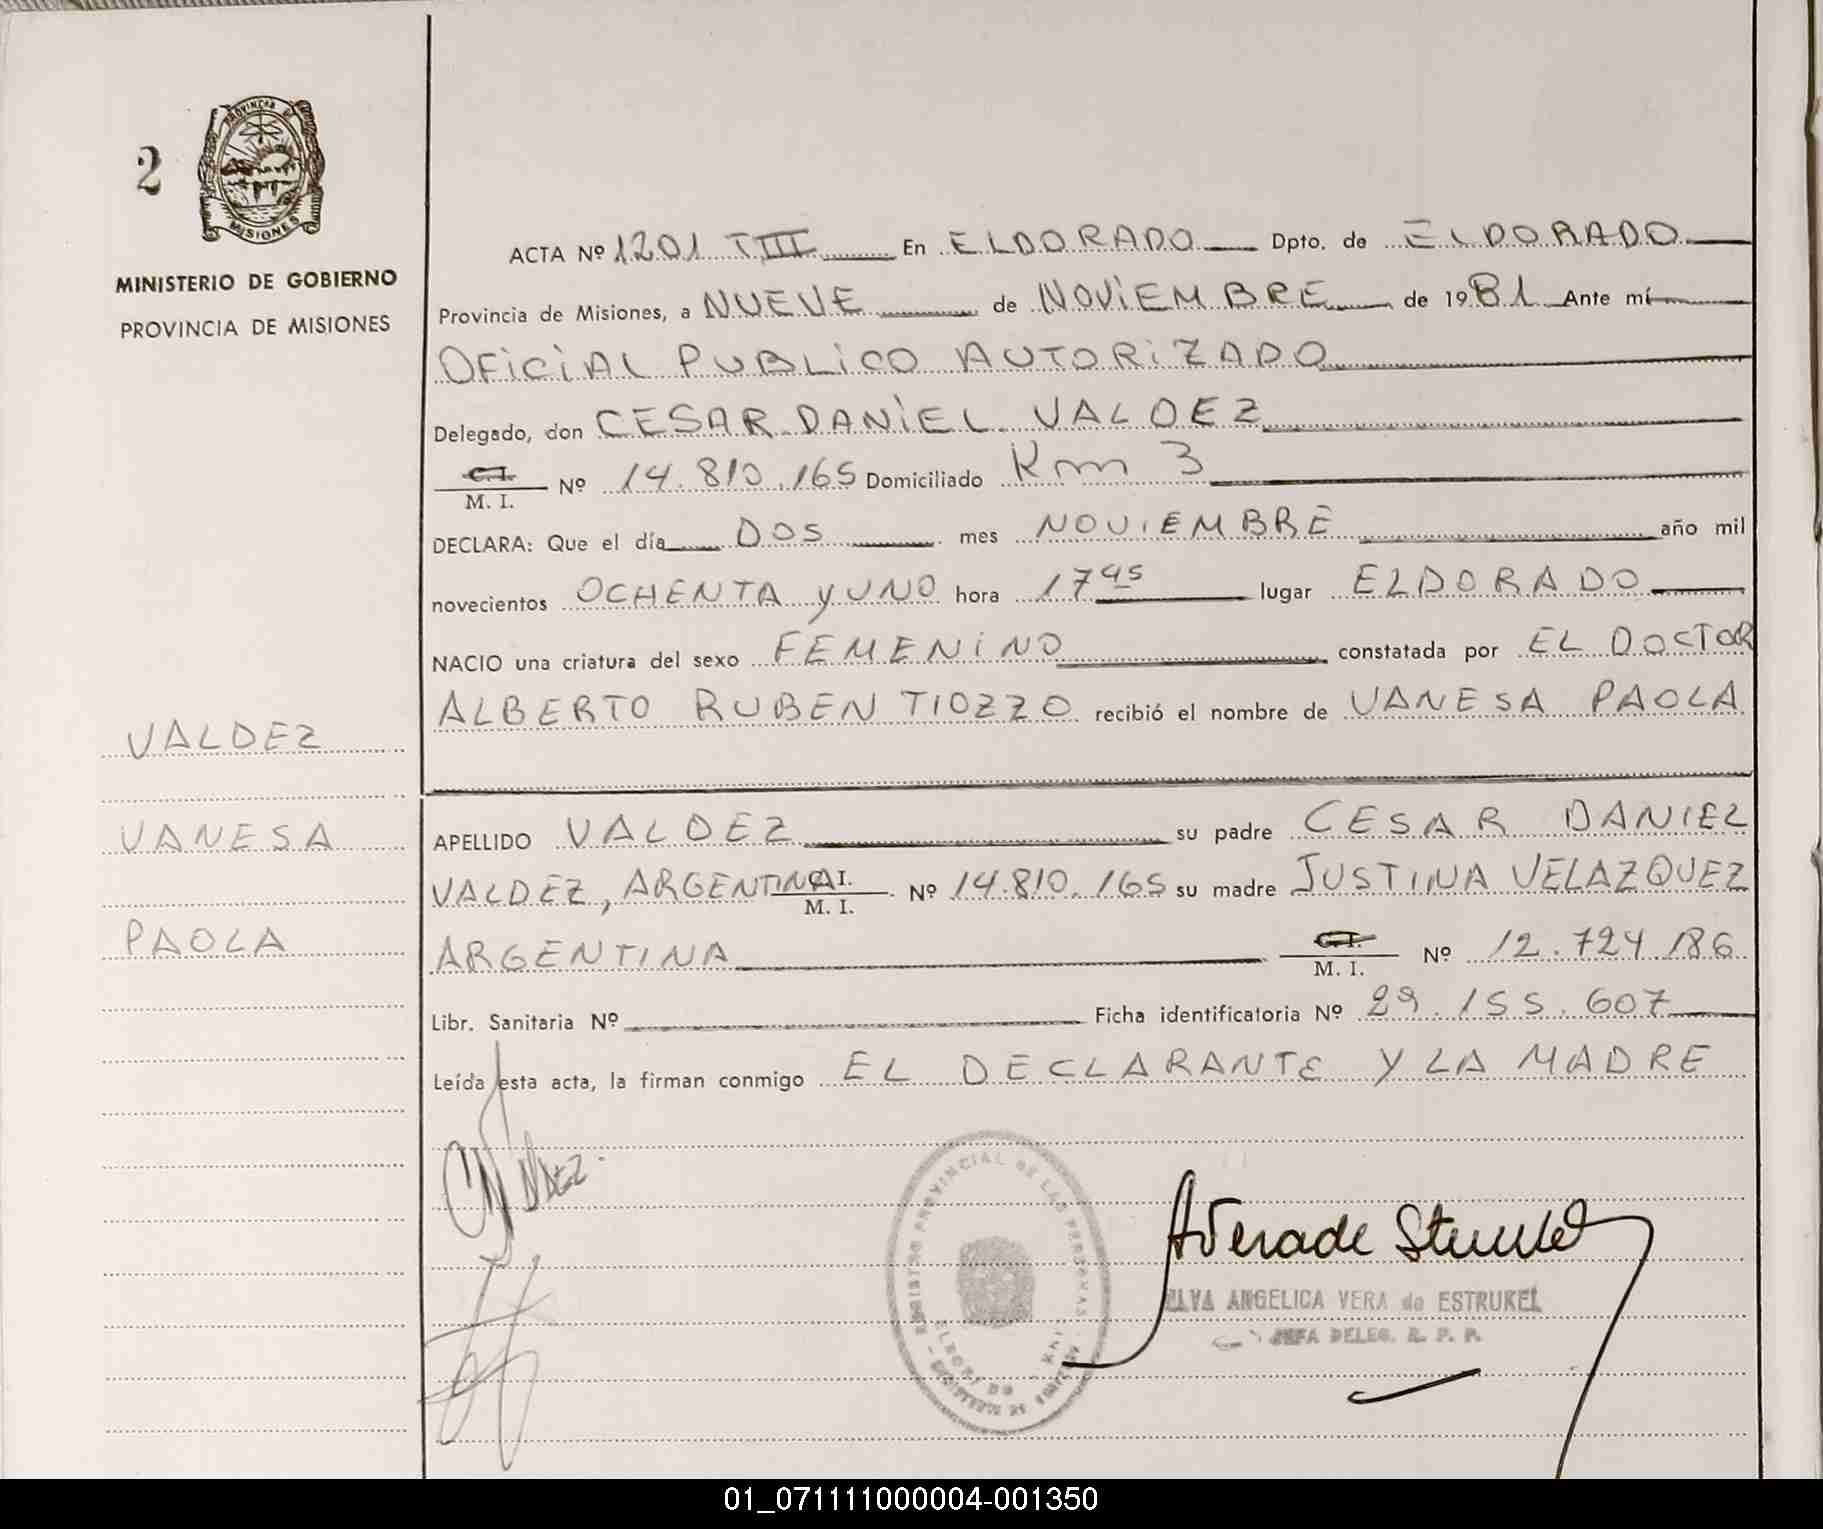 2
PROVINCIA DE
MISIONES
MINISTERIO DE GOBIERNO
PROVINCIA DE MISIONES
VALDEZ
VANESA
PAOLA
ACTA Nº 1201 T III En ELDORADO Dpto. de ELDORADO
Provincia de Misiones, a NUEVE de NOVIEMBRE de 1981 Ante mí
OFICIAL PUBLICO AUTORIZADO
Delegado, don CESAR DANIEL VALDEZ
C.I.
M. I. Nº 14.810.165 Domiciliado Km 3
DECLARA: Que el día DOS mes NOVIEMBRE año mil
novecientos OCHENTA y UNO hora 17 45 lugar ELDORADO
NACIO una criatura del sexo FEMENINO constatada por EL DOCTOR
ALBERTO RUBEN TIOZZO recibió el nombre de VANESA PAOLA
APELLIDO VALDEZ su padre CESAR DANIEL
VALDEZ, ARGENTINA C.I.
M. I. Nº 14.810.165 su madre JUSTINA VELAZQUEZ
ARGENTINA C.I.
M. I. Nº 12.724.186
Libr. Sanitaria Nº Ficha identificatoria Nº 29.155.607
Leída esta acta, la firman conmigo EL DECLARANTE Y LA MADRE
REGISTRO PROVINCIAL DE LAS PERSONAS
ELDORADO
ELVA ANGELICA VERA de ESTRUKEL
JEFA DELEG. R. P. P.
01_071111000004-001350